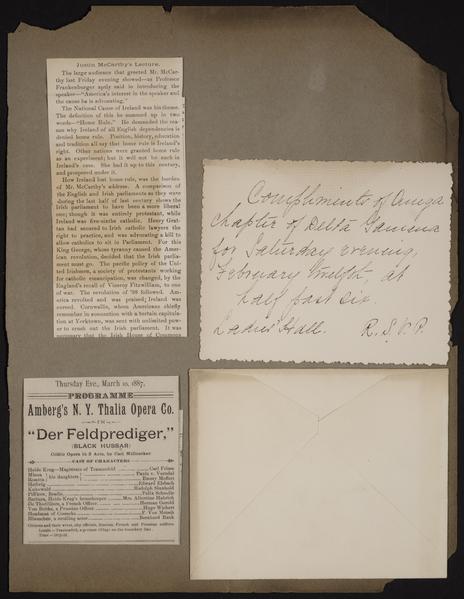 Justin McCarthy's Lecture.
The large audience that greeted Mr. McCar-
thy last Friday evening showed—as Professor
Frankenburger aptly said in introducing the
speaker—"America's interest in the speaker and
the cause he is advocating."
The National Cause of Ireland was his theme.
The definition of this he summed up in two
words—"Home Rule." He demanded the rea-
son why Ireland of all English dependencies is
denied home rule. Position, history, education
and tradition all say that home rule is Ireland's
right. Other nations were granted home rule
as an experiment; but it will not be such in
Ireland's case. She had it up to this century,
and prospered under it.
How Ireland lost home rule, was the burden
of Mr. McCarthy's address. A comparison of
the English and Irish parliaments as they were
during the last half of last century shows the
Irish parliament to have been a more liberal
one; though it was entirely protestant, while
Ireland was five-sixths catholic. Henry Grat-
tan had secured to Irish catholic lawyers the
right to practice, and was advocating a bill to
allow catholics to sit in Parliament. For this
King George, whose tyranny caused the Amer-
ican revolution, decided that the Irish parlia-
ment must go. The pacific policy of the Uni-
ted Irishmen, a society of protestants working
for catholic emancipation, was changed, by the
England's recall of Viceroy Fitzwilliam, to one
of war. The revolution of '98 followed. Am-
erica revolted and was praised; Ireland was
cursed. Cornwallis, whom Americans chiefly
remember in connection with a certain capitula-
tion at Yorktown, was sent with unlimited pow-
er to crush out the Irish parliament. It was
necessary that the Irish House of Commons
Compliments of Omega
Chapter of Delta Gamma
for Saturday evening,
February twelfth, at
half past six.
Ladies' Hall. R.S.V.P.
Thursday Eve., March 10, 1887.
PROGRAMME
Amberg's N. Y. Thalia Opera Co.
IN
"Der Feldprediger,"
(BLACK HUSSAR)
Comic Opera in 3 Acts, by Carl Milloecker
CAST OF CHARACTERS